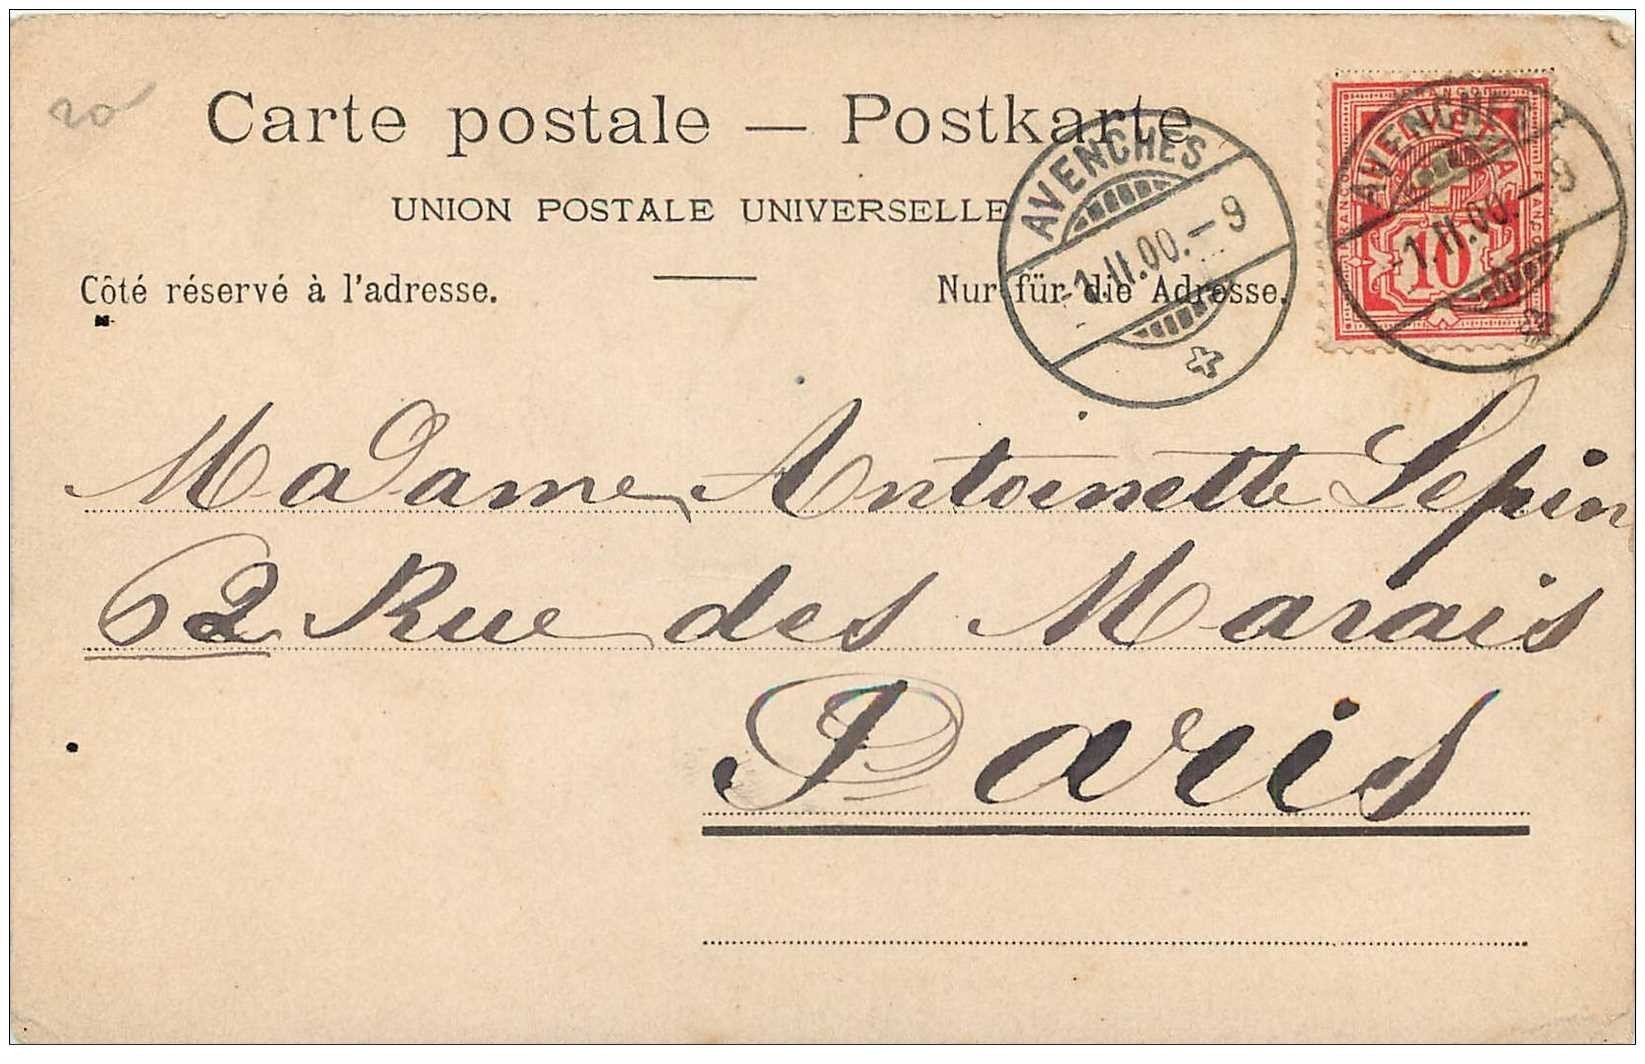 20
Carte postale — Postkarte
UNION POSTALE UNIVERSELLE
Côté réservé à l'adresse.
Nur für die Adresse.
AVENCHES
-1.II.00.-9
AVENCHES
-1.II.00.-9
FRANCO
10
Madame Antoinette Lepin
62 Rue des Marais
Paris